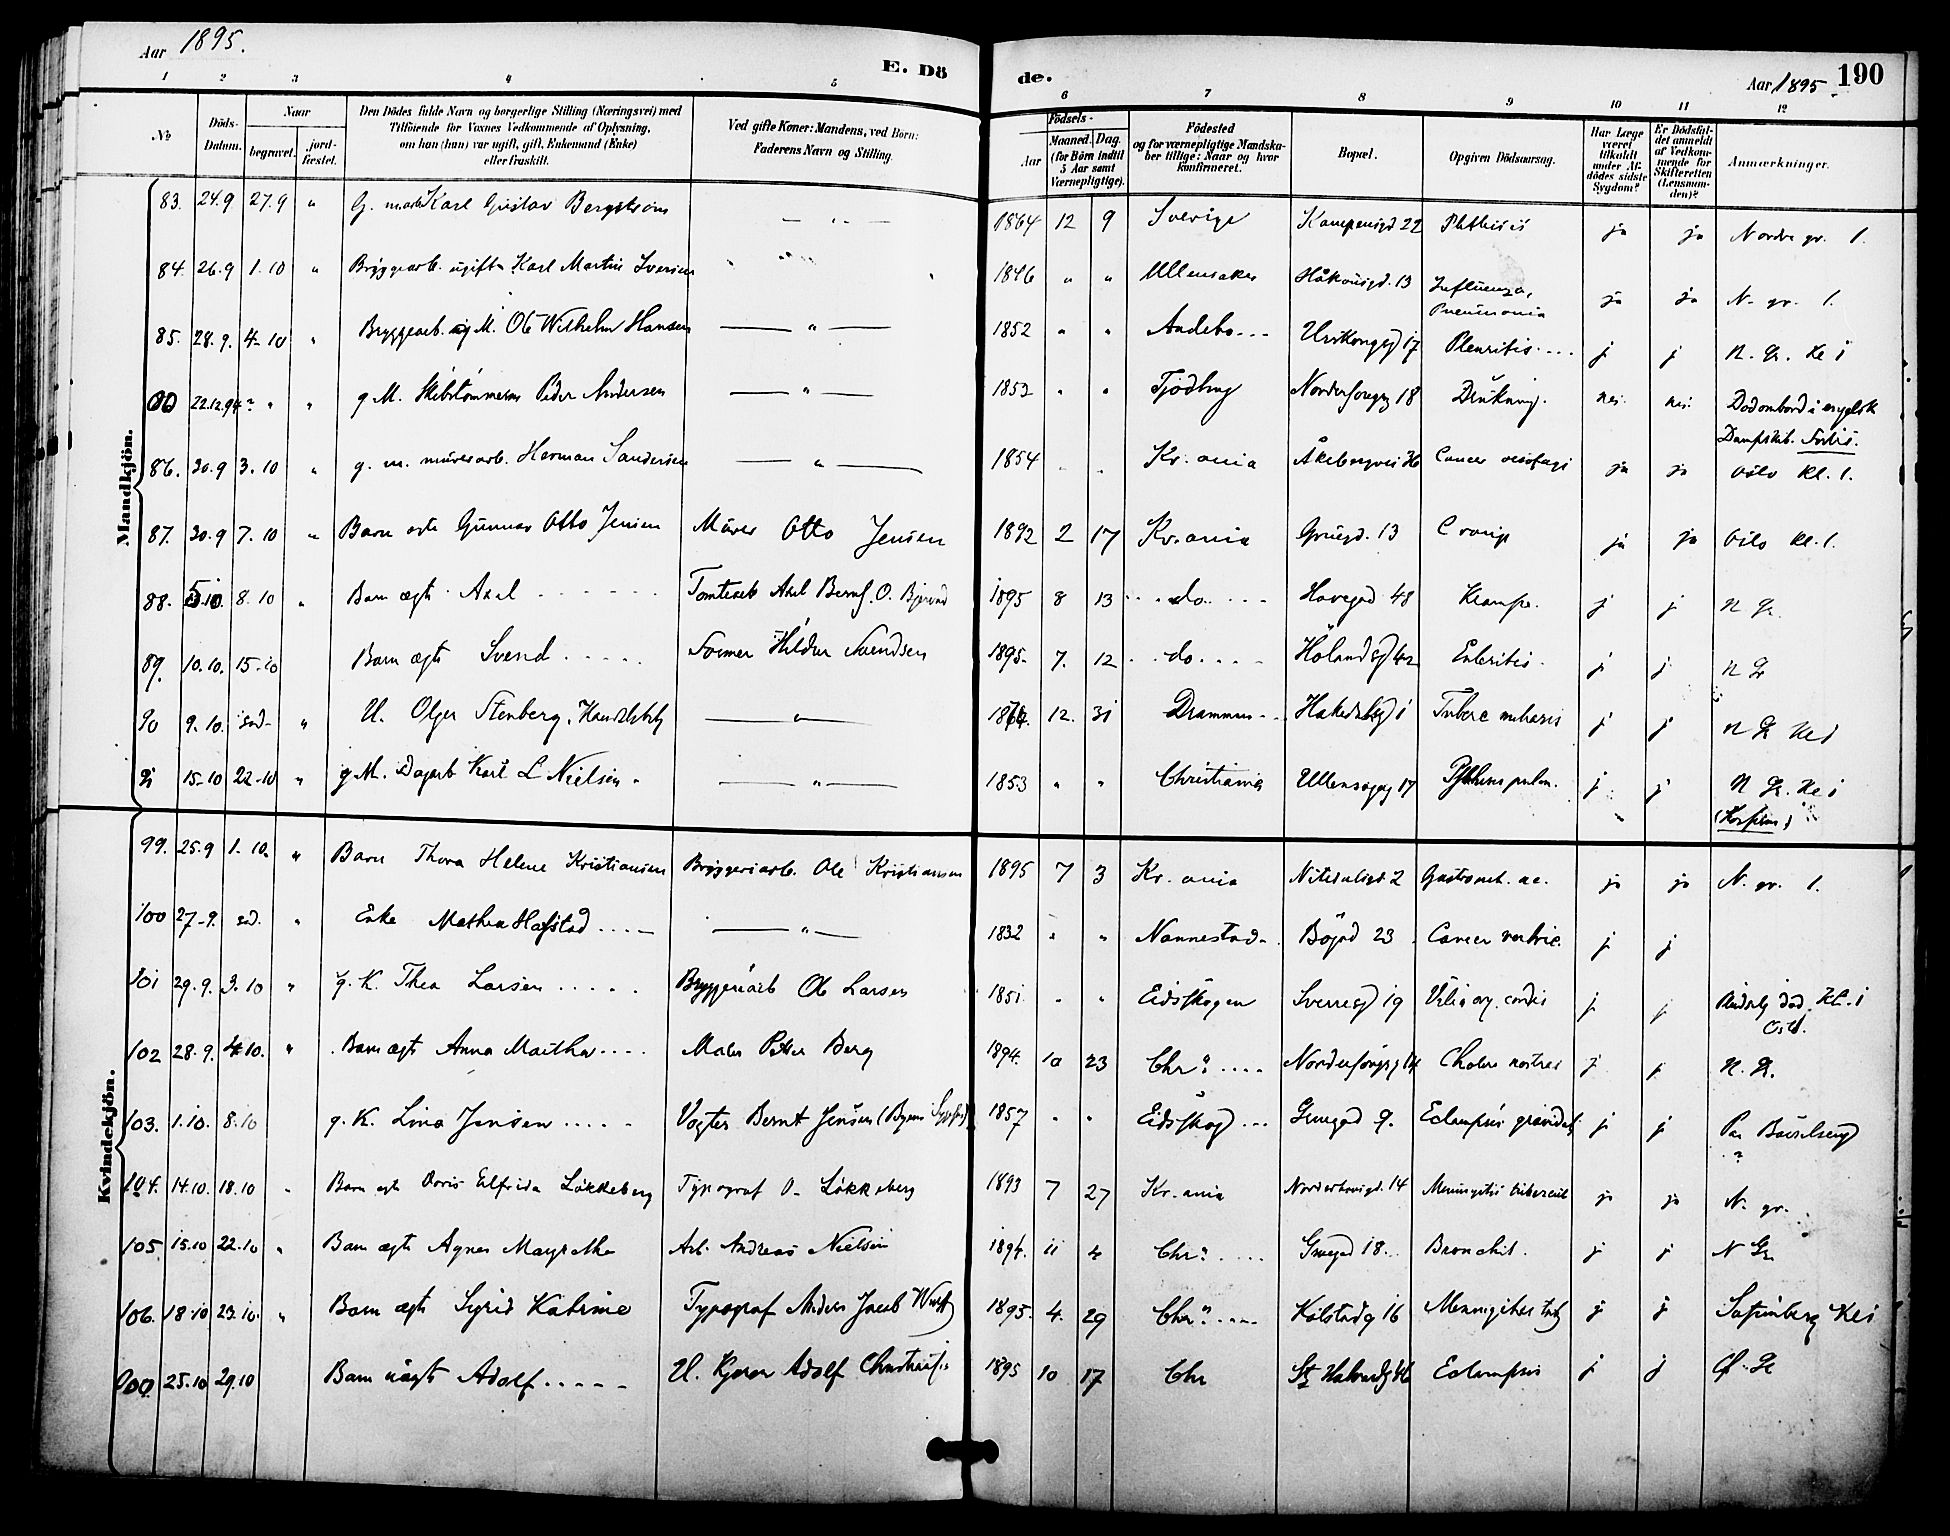 Aar 1895.
E. Dö
de.
Aar 1895.
190
1 2 3 4 5
6 7 8 9 10 11 12
No
Döds-
Datum.
Naar
begravet.
jord-
fæstet.
Den Dödes fulde Navn og borgerlige Stilling (Næringsvei) med
Tilföiende for Voxnes Vedkommende af Oplysning,
om han (hun) var ugift, gift, Enkemand (Enke)
eller fraskilt.
Ved gifte Koner: Mandens, ved Börn:
Faderens Navn og Stilling.
Födsels-
Aar
Maaned. Dag.
(for Börn indtil
5 Aar samt
Værnepligtige).
Födested
og for værnepligtige Mandska-
ber tillige: Naar og hvor
konfirmeret.
Bopæl.
Opgiven Dödsaarsag.
Har Læge
været
tilkaldt
under Af-
dödes sidste
Sygdom?
Er Dödsfal-
det anmeldt
af Vedkom-
mende for
Skifteretten
(Lensman-
den)?
Anmærkninger.
Mandkjön.
83. 24.9 27.9 " G. Karl Gustav Bergström — " — 1864 12 9 Sverige Kampensgd 22 Phthisis ja ja Nordre gr. 1.
84. 26.9 1.10 " Bryggearb. ugift Karl Martin Iversen " 1846 " " Ullensaker Håkonsgd. 13 Influenza, Pneumonia ja ja N. gr. 1.
85. 28.9. 4-10 " Bryggearb. M. Ole Wilhelm Hansen — " — 1852 " " Andebo Urskougsgd 17 Pleuritis j j N. Gr. Kl 1
00 22.12.94 " " g M. Skibstömmerm Peder Andersen — " — 1853 " " Tjödling 18 Drukning. nei. nei. Död ombord i engelsk
Dampskib.
86. 30.9 3.10 " g. m. murerarb. Herman Sandersen — " — 1854 " " Kr.ania Åkebergvei 36 Cancer oesofagi ja ja Oslo kl. 1.
87. 30.9 7.10 " Barn ægte Gunnar Otto Jensen Murer Otto Jensen 1892 2 17 Kr.ania Grüegd. 13 Croup ja ja Oslo kl. 1.
88. 5.10. 8.10 " Barn ægte Axel Axel Bernh. O. 1895 8 13 do. Havegad 48 Krampe. j j N Gr.
89. 10.10. 15.10 Barn ægte Svend Former Hildur Svendsen 1895. 7. 12 do. Hölandsgd 42 Enteritis. j j N Gr
90 9.10. " U. Olger Stenberg, — " — 12. 31 Drammen 1 j j N Gr Kl 1
91 15-10 22-10 " g M. Dagarb Karl L Nielsen — " — 1853 " " Christiania Ullensagsg 17 Phthisis pulm. j j N Gr. Kl 1
Kvindekjön.
99. 25.9 1.10. " Barn Thora Helene Kristiansen Bryggeriarb. Ole Kristiansen 1895 7 3 Kr.ania Nitedalsgd. 2 ja ja N. gr. 1.
100 27-9. " Enke Mathea Hafstad — " — 1832 " " Nannestad Bögd 23 Cancer ventric. j j
101 29.9. 3.10 " g. K. Thea Larsen Bryggeriarb Ole Larsen 1851. " " Eidsskogen Sverresgd 19 Vitium org. cordis j j Kl. 1
102 28.9. 4.10. " Barn ægte Anna Martha Maler Petter Berg 1894. 10 23 Chra. 14 Cholera nostras j j N. Gr.
103. 1.10. 8.10 g. K. Lina Jensen Vogter Bernt Jensen 1857 " " Eidsskog Gruegad 9. Eclampsis gravidar. j j Paa
104. 14.10. 18.10 " Barn ægte Doris Elfrida Lökkeberg Typograf O. Lökkeberg 1893 7 27 Kr.ania Norderhovsgd. 14 Meningitis tubercul ja ja N. gr.
105 15.10 22.10 " Barn ægte Agnes Margrethe Arb. Andreas Nielsen 1894. 11 4 Chra. Gruegad 18. Bronchit. j j N Gr
106. 18.10 23.10. " Barn ægte Sigrid Katrine Typograf Anders Jacob 1895. 4. 29 Chra. Kölstadg 16 j j Kl 1
000 25.10 29.10 Barn uægt Adolf 1895 10 17 Chr St Halvardsg 46 Eclampsis j j